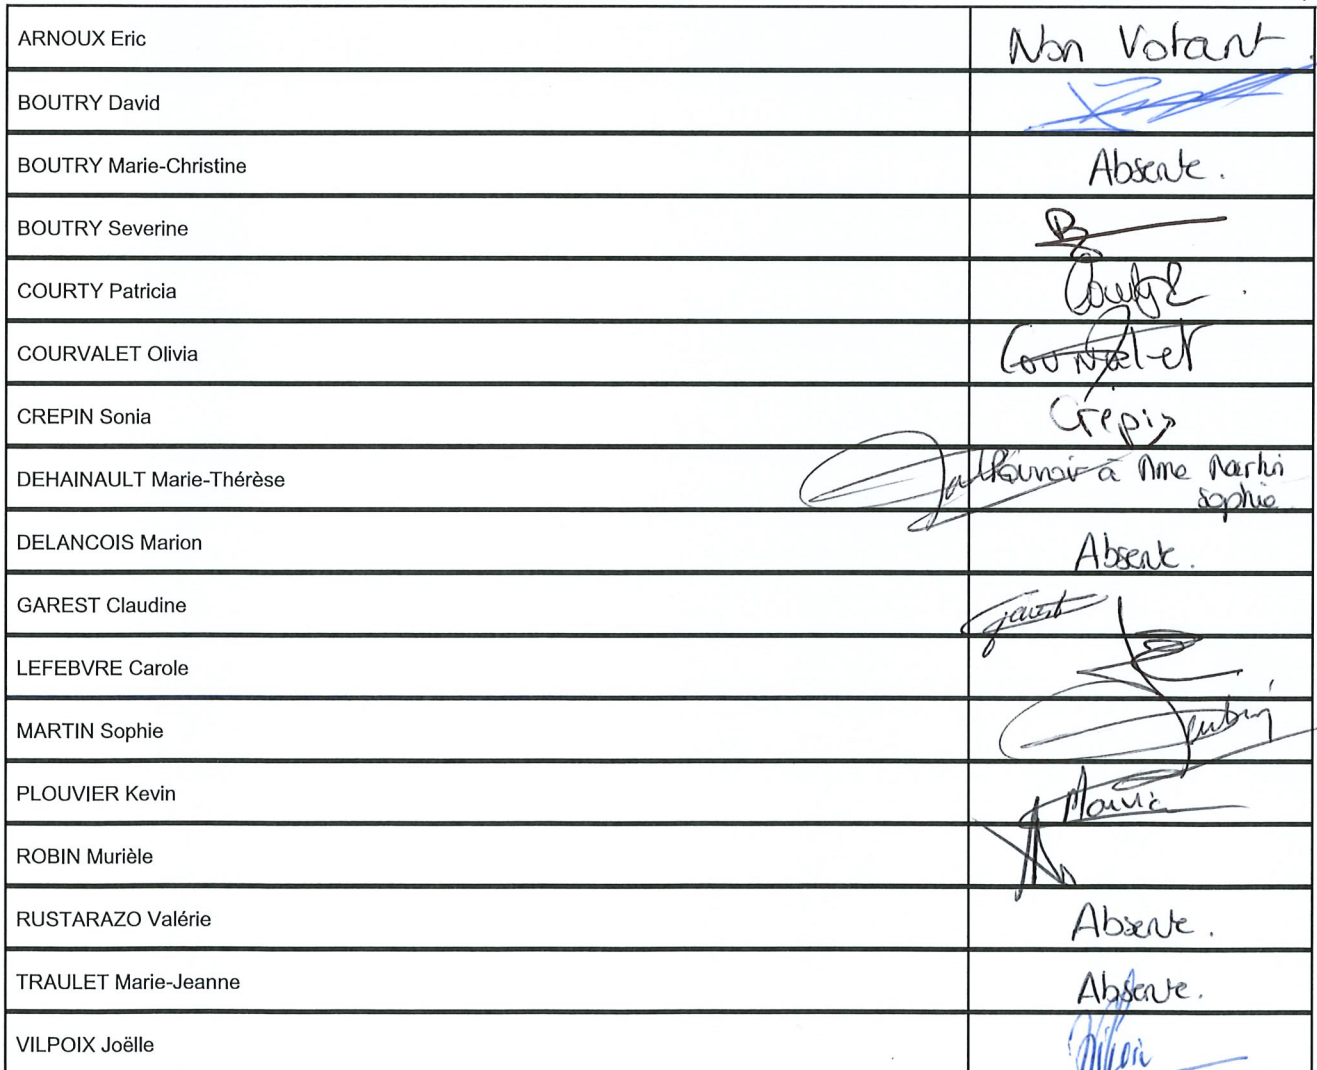 ARNOUX Eric Non Votant
BOUTRY David
BOUTRY Marie-Christine Absente.
BOUTRY Severine
COURTY Patricia
COURVALET Olivia Courvalet
CREPIN Sonia Crépin
DEHAINAULT Marie-Thérèse Pouvoir à Mme Martin
Sophie
DELANCOIS Marion Absente.
GAREST Claudine
LEFEBVRE Carole
MARTIN Sophie
PLOUVIER Kevin
ROBIN Murièle
RUSTARAZO Valérie Absente.
TRAULET Marie-Jeanne Absente.
VILPOIX Joëlle